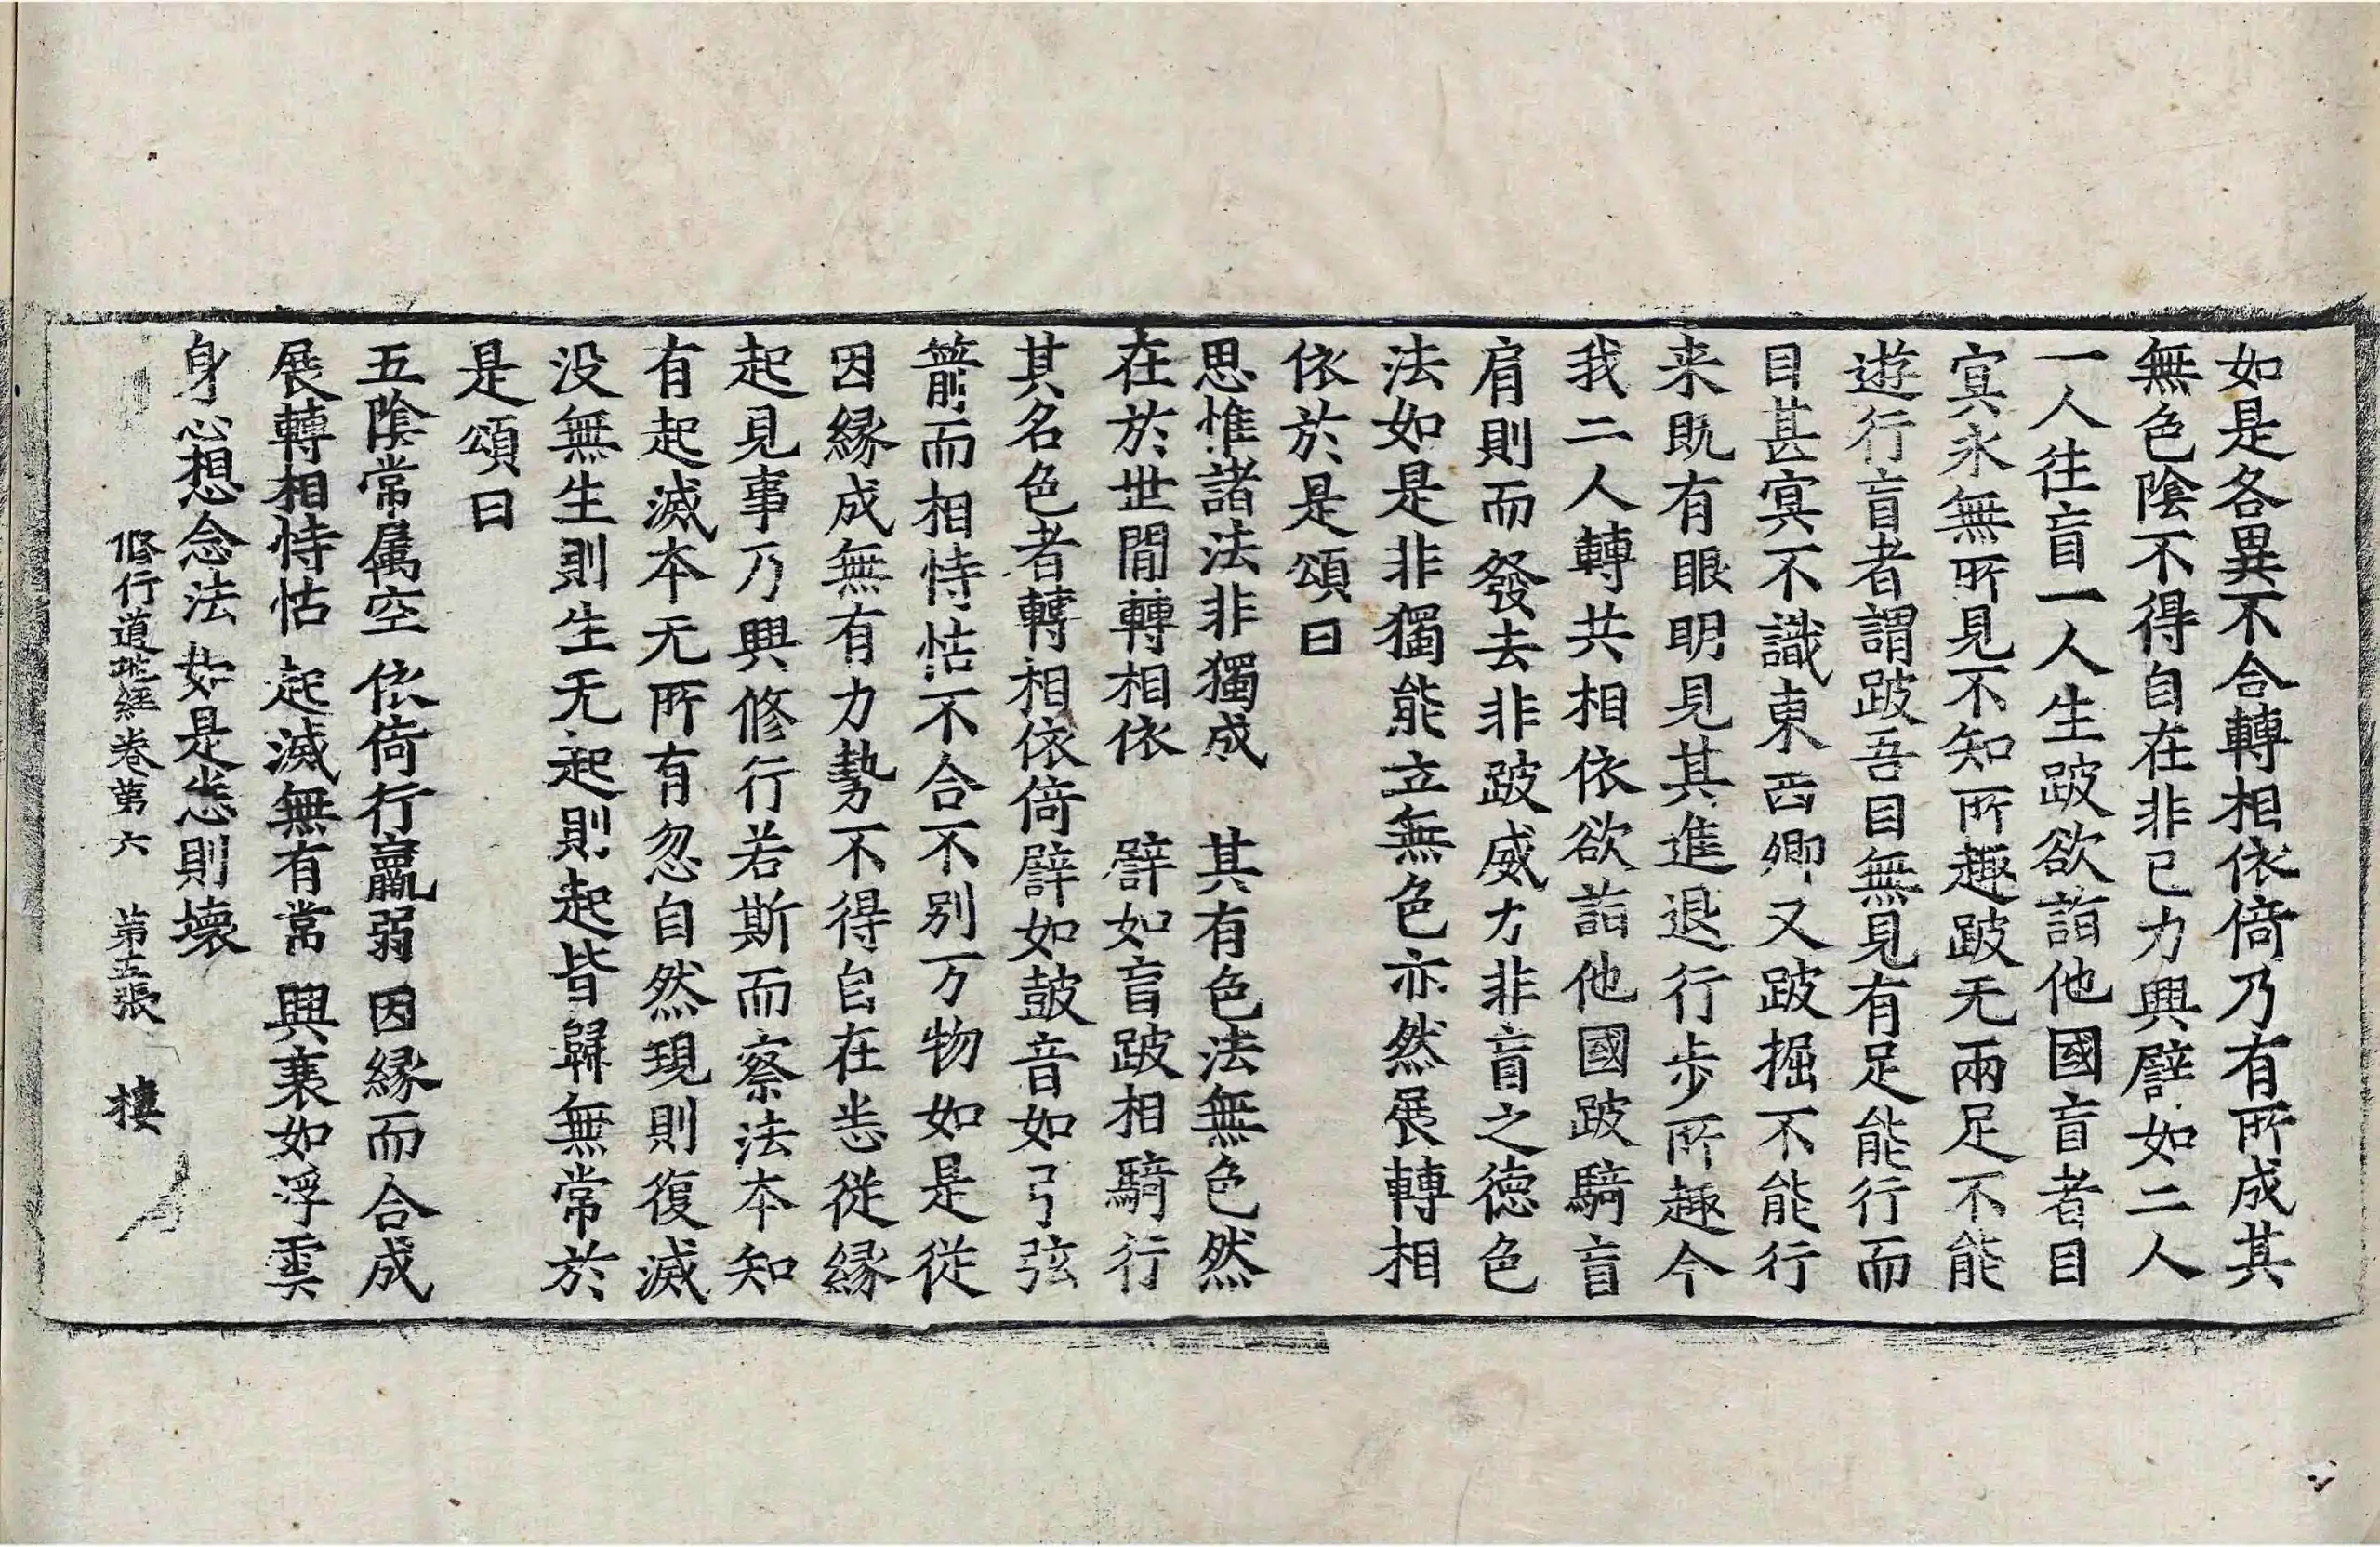 如是各異不合轉相依倚乃有所成其
無色陰不得自在非已力興譬如二人
一人往盲一人生跛欲詣他國盲者目
㝠永無所見不知所趣跛无兩足不能
遊行盲者謂跛吾目無見有足能行而
目甚㝠不識東西卿又跛掘不能行
来既有眼明見其進退行步所趣今
我二人轉共相依欲詣他國跛騎盲
肩則而發去非跛威力非盲之德色
法如是非獨能立無色亦然展轉相
依於是頌曰
思惟諸法非獨成　其有色法無色然
在於世間轉相依　譬如盲跛相騎行
其名色者轉相依倚譬如鼓音如弓弦
箭而相恃怙不合不別万物如是從
因緣成無有力勢不得自在恙從緣
起見事乃興修行若斯而察法本知
有起滅本无所有忽自然現則復滅
没無生則生无起則起皆歸無常於
是頌曰
五陰常属空　依倚行羸弱　因緣而合成
展轉相恃怙　起滅無有常　興衰如浮雲
身心想念法　如是恙則壞
修行道地經卷第六　第五張　樓